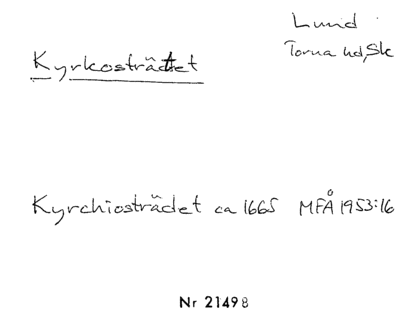 Lund
Torna hd, Sk
Kyrkosträtet
Kyrchiosträdet ca 1665 MFÅ 1953:16
Nr 21498